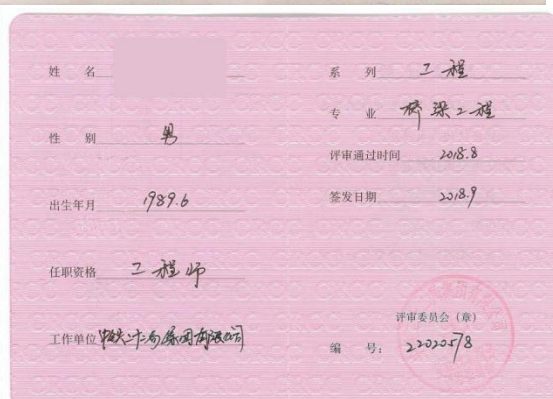 姓 名
性 别 男
出生年月 1989.6
任职资格 工程师
工作单位 中铁二十二局集团有限公司
系 列 工程
专 业 桥梁工程
评审通过时间 2018.8
签发日期 2018.9
评审委员会（章）
编 号： 22020578